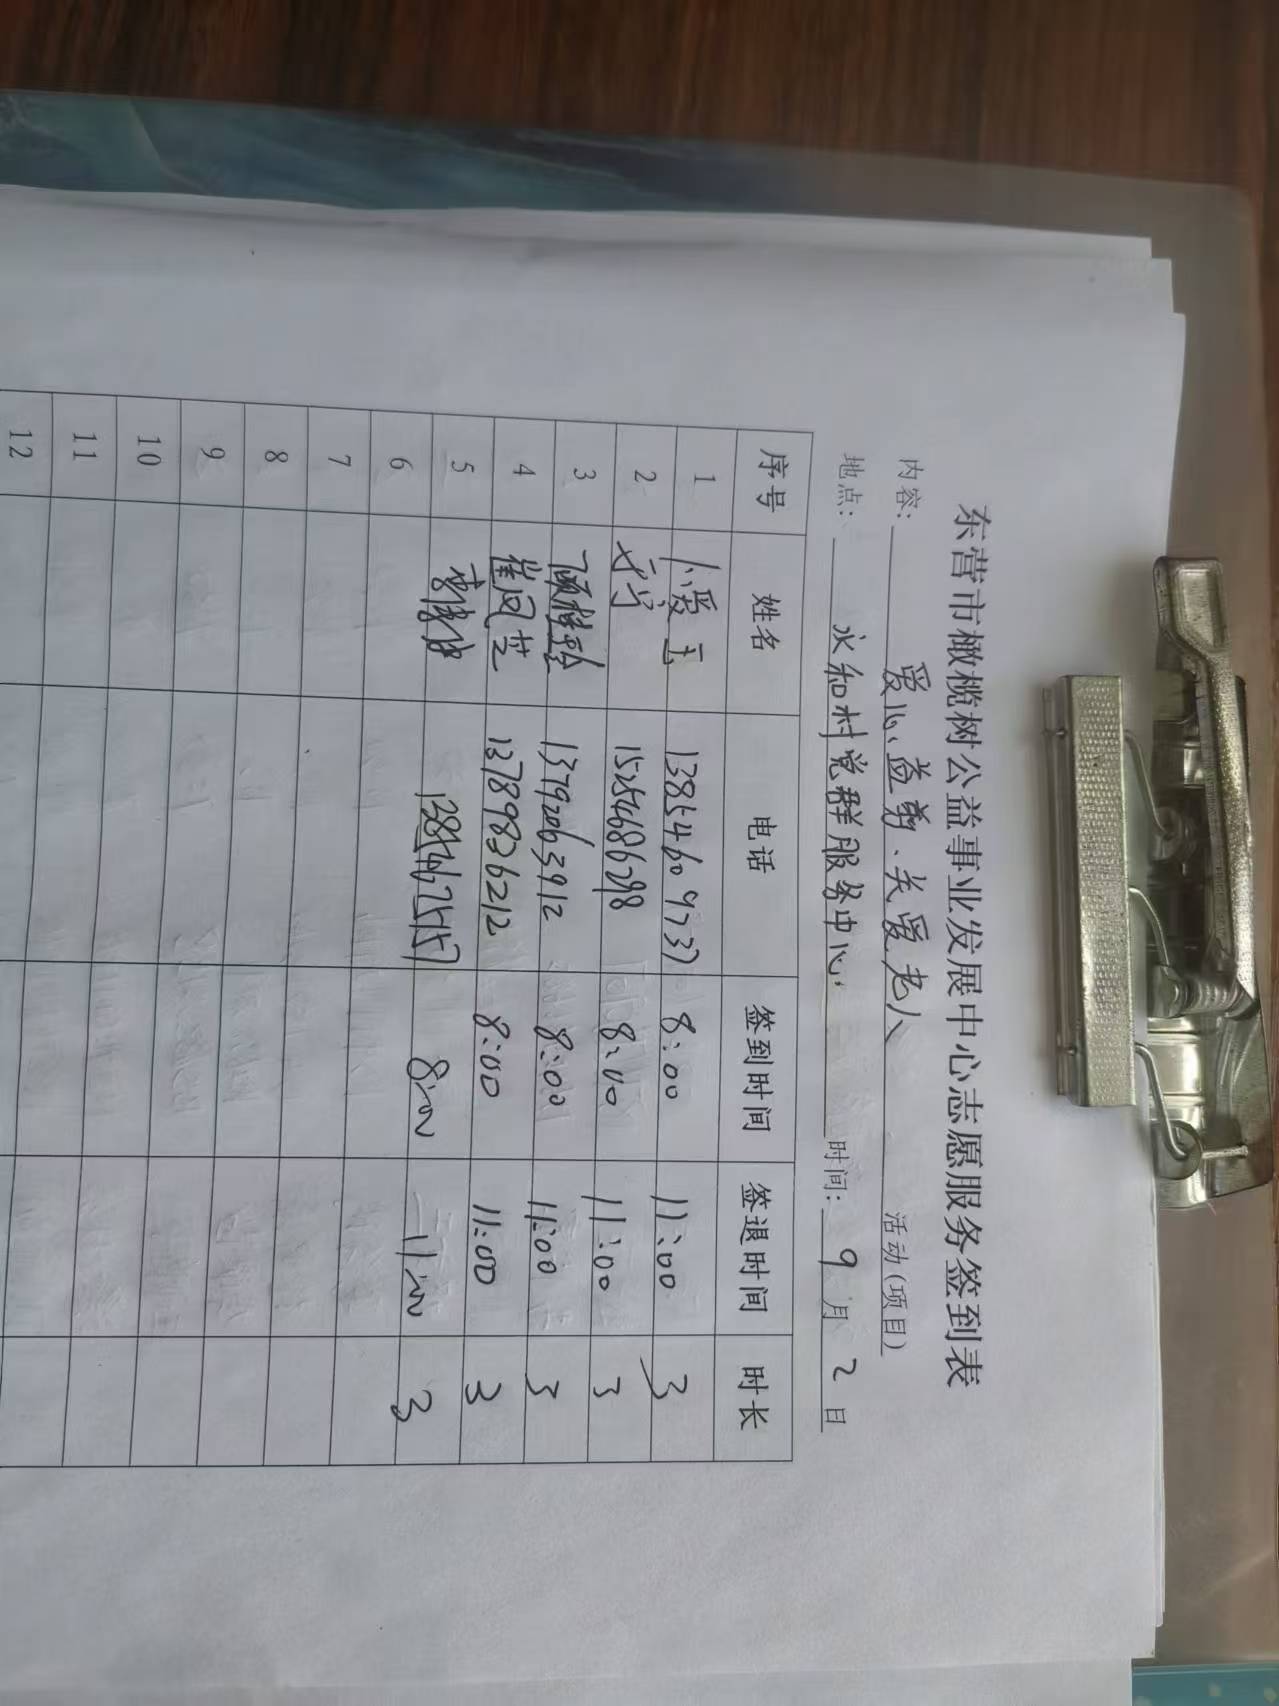 东营市橄榄树公益事业发展中心志愿服务签到表
内容: 爱心益剪、关爱老人 活动(项目)
地点: 永和村党群服务中心 时间: 9月2日
序号 姓名 电话 签到时间 签退时间 时长
1 13854609737 8:00 11:00 3
2 15254686298 8:00 11:00 3
3 13792063912 8:00 11:00 3
4 崔风芝 13789836212 8:00 11:00 3
5 8:00 11:00 3
6
7
8
9
10
11
12